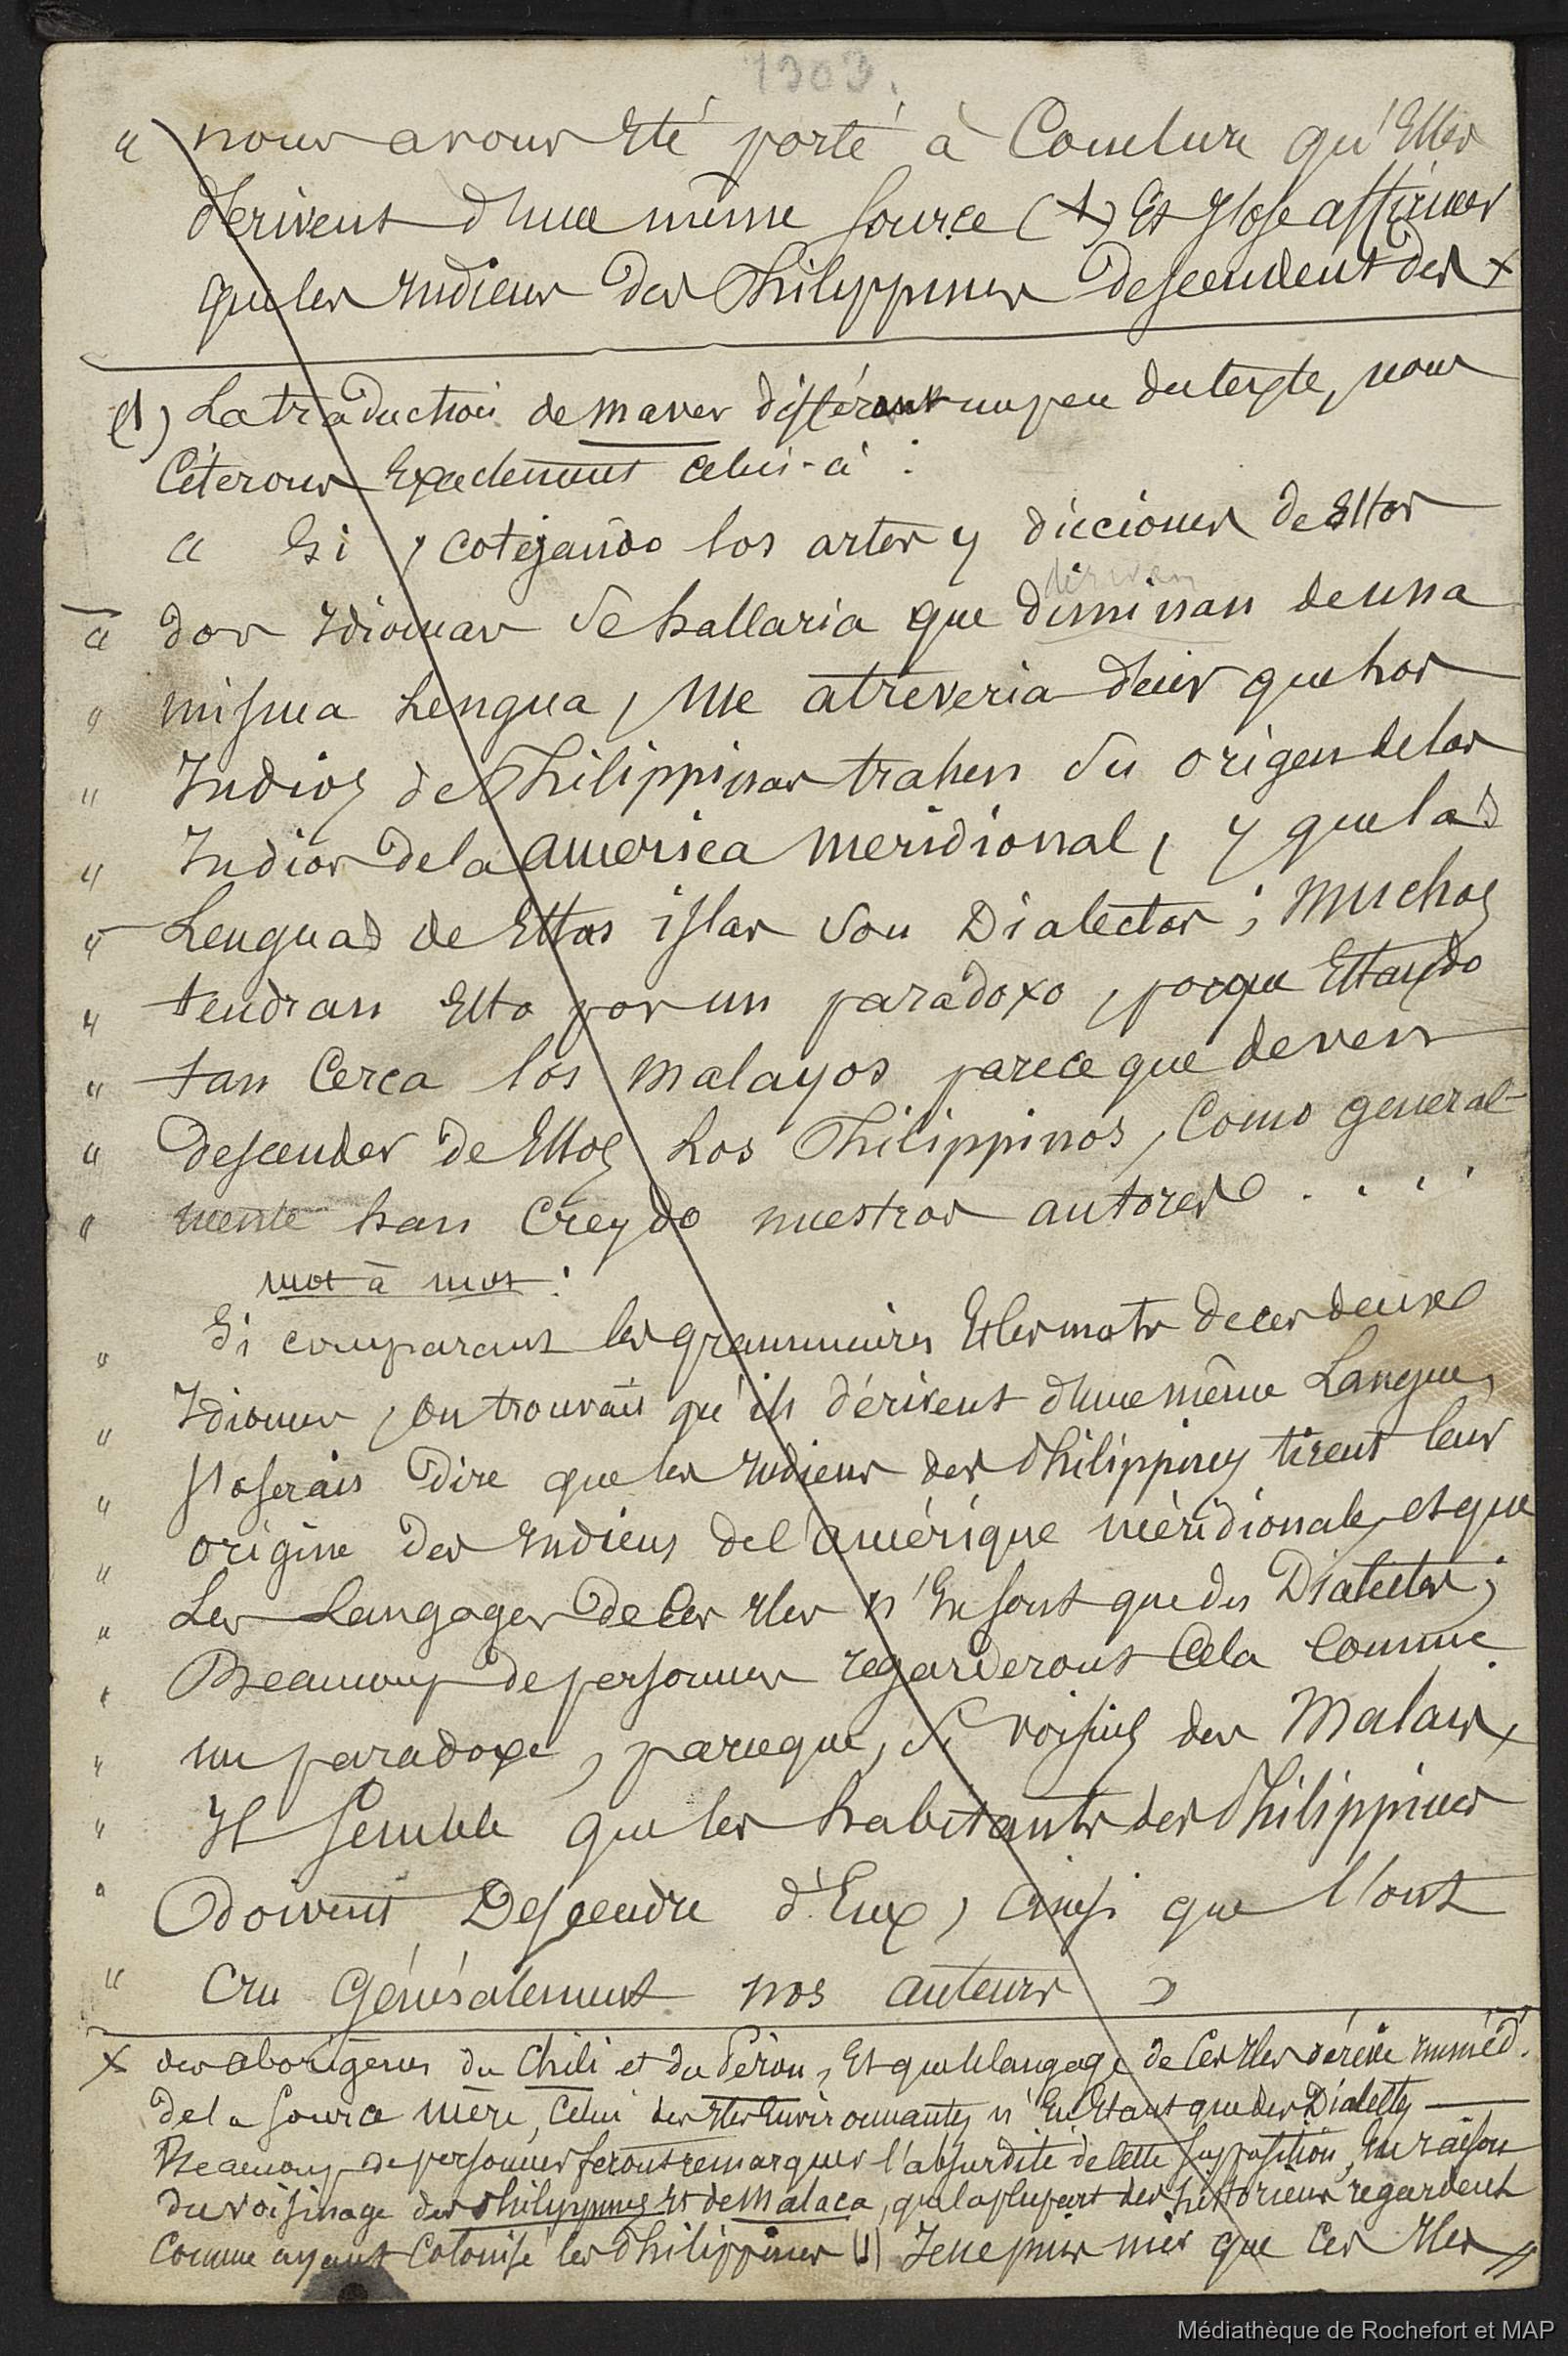 1303.
" nous avons Eté porté à Conclure qu'Elles
dérivent d'une même source (1) Et j'ose affirmer
que les Indiens des Philippines descendent des ×
(1) La traduction de maver différant un peu du texte, nous
Citerons Exactement celui-ci :
" Si, cotejando los artes y dicciones de Estos
" dos Idiomas se hallaria que diminan de una
derivan
" misma Lengua, Me atreveria decir que los
" Indios de Philippinas trahen su origen de los
" Indios de la america meridional, y que las
" Lenguas de Estas islas son Dialectos ; muchos
" tendran Esto por un paradoxo, porque Estando
" tan Cerca los malayos parece que deven
" descender de Ellos Los Philippinos, Como general-
" mente han Creydo nuestros autores . . . .
mot à mot :
" Si comparant les grammaires Et les mots de ces deux
" Idiomes, on trouvait qu'ils dérivent d'une même Langue,
" J'oserais dire que les Indiens des Philippines tirent leur
" origine des Indiens de l'amérique méridionale, et que
" Les Langages de Ces Iles n'En sont que des Dialectes ;
" Beaucoup de personnes regarderont Cela Comme
" un paradoxe, parceque, si voisins des Malais,
" Il semble que les habitants des Philippines
" doivent Descendre d'Eux, ainsi que l'ont
" Cru Généralement nos auteurs "
× des aborigènes du Chili et du Pérou, Et que le langage de Ces Iles dérive imméd.
de la source mère, Celui des Iles Environnantes n'En Etant que des Dialectes —
Beaucoup de personnes feront remarquer l'absurdité de cette supposition, En raison
du voisinage des Philippines Et de Malaca, que la plupart des historiens regardent
Comme ayant Colonisé les Philippines (1) Je ne puis nier que Ces Iles //
Médiathèque de Rochefort et MAP